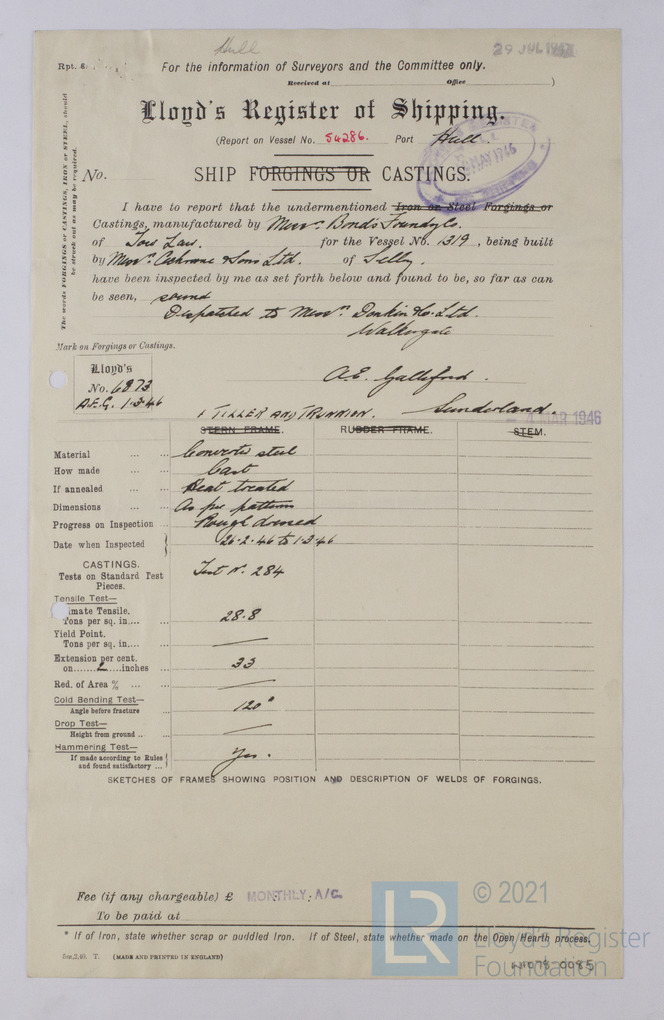 Hull
29 JUL 194
Rpt. 8.
For the information of Surveyors and the Committee only.
Received at Office )
Lloyd's Register of Shipping.
(Report on Vessel No. 54286. Port Hull.
MAY 1946
No. SHIP FORGINGS OR CASTINGS.
The words FORGINGS or CASTINGS, IRON or STEEL, should
be struck out as may be required.
I have to report that the undermentioned Iron or Steel Forgings or
Castings, manufactured by Messrs. Bonds Foundry Co.
of Tow Law. for the Vessel No. 1319, being built
by Messrs. Cochrane & Sons Ltd. of Selby.
have been inspected by me as set forth below and found to be, so far as can
be seen, sound
Dispatched to Messrs. Donkin & Co. Ltd.
Walkergate
Mark on Forgings or Castings.
Lloyd's
No. 6873
A.E.G. 1·3·46
A.E. Galliford.
Sunderland.
MAR 1946
1 TILLER AND TRUNNION.
STERN FRAME. RUDDER FRAME. STEM.
Material ... ... Converter steel
How made ... ... Cast
If annealed ... ... Heat treated
Dimensions ... ... As per pattern
Progress on Inspection ... Rough dressed
Date when Inspected 26·2·46 to 1·3·46
CASTINGS.
Tests on Standard Test
Pieces.
Test No. 284
Tensile Test—
imate Tensile.
Tons per sq. in.... ... 28·8
Yield Point.
Tons per sq. in.... ... —
Extension per cent.
on 2 inches ... 33
Red. of Area % ... ... —
Cold Bending Test—
Angle before fracture 120°
Drop Test—
Height from ground .. ... —
Hammering Test—
If made according to Rules
and found satisfactory ... Yes.
SKETCHES OF FRAMES SHOWING POSITION AND DESCRIPTION OF WELDS OF FORGINGS.
Fee (if any chargeable) £ MONTHLY A/C.
To be paid at
* If of Iron, state whether scrap or puddled Iron. If of Steel, state whether made on the Open Hearth process.
5m,2,40. T. (MADE AND PRINTED IN ENGLAND)
LR
© 2021
Lloyd's Register
Foundation
W1078-0085